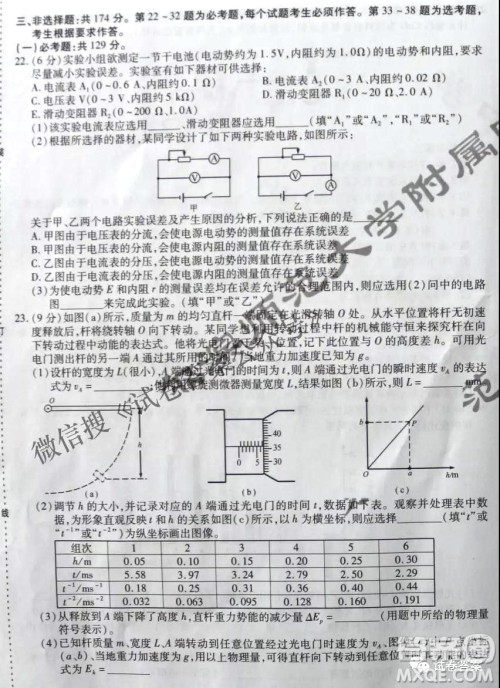 三、非选择题:共174分。第22~32题为必考题,每个试题考生必须作答。第33~38题为选考题,
考生根据要求作答。
(一)必考题:共129分。
22.(6分)实验小组欲测定一节干电池(电动势约为1.5V,内阻约为1.0Ω)的电动势和内阻,要求
尽量减小实验误差。实验室有如下器材可供选择:
A.电流表A₁(0~0.6 A,内阻约0.1 Ω)
B.电流表A₂(0~3 A,内阻约0.02 Ω)
C.电压表V(0~3 V,内阻约5 kΩ)
D.滑动变阻器R₁(0~20 Ω,2.0 A)
E.滑动变阻器R₂(0~200 Ω,1.0A)
(1)该实验电流表应选用______,滑动变阻器应选用______(填“A₁”或“A₂”,“R₁”或“R₂”)
(2)根据所选择的器材,某同学设计了如下两种实验电路,如图所示:
A
V
甲
A
V
乙
关于甲、乙两个电路实验误差及产生原因的分析中,下列说法正确的是
A.甲图由于电压表的分流,会使电源电动势的测量值存在系统误差
B.甲图由于电压表的分流,会使电源内阻的测量值存在系统误差
C.乙图由于电流表的分压,会使电源电动势的测量值存在系统误差
D.乙图由于电流表的分压,会使电源内阻的测量值存在系统误差
(3)为使电动势E和内阻r的测量误差均在误差允许的合理范围内,则应选用(2)问中的电路
图______来完成此实验。(填“甲”或“乙”)
23.(9分)如图(a)所示,质量为m的均匀直杆一端固定在光滑转轴O处。从水平位置将杆无初速
度释放后,杆将绕转轴O向下转动。某同学想利用转动过程中杆的机械能守恒来探究杆在向
下转动过程中动能的表达式。他将光电门置于某一位置,记下此位置与O的高度差h。可用光
电门测出杆的另一端A通过其所用的时间t,当地重力加速度已知为g。
(1)设杆的宽度为L(很小),A端通过光电门的时间为t,则A端通过光电门的瞬时速度v_A的表达
式为v_A=______。他利用螺旋测微器测量宽度L,结果如图(b)所示,则L=______mm。
O
h
(a)
0 5
45
40
35
30
(b)
b
P
O
a
h/m
(c)
(2)调节h的大小,并记录对应的A端通过光电门的时间t,数据如下表。观察并处理表中数
据,为形象直观反映t和h的关系如图(c)所示,以h为横坐标,则应选择______(填“t”或
“t⁻¹”或“t⁻²”)为纵坐标画出图像。
组次 1 2 3 4 5 6
h/m 0.05 0.10 0.15 0.20 0.25 0.30
t/ms 5.58 3.97 3.24 2.79 2.50 2.29
t⁻¹/ms⁻¹ 0.18 0.25 0.31 0.36 0.40 0.44
t⁻²/ms⁻² 0.032 0.063 0.095 0.128 0.160 0.191
(3)从释放到A端下降了高度h,直杆重力势能的减少量ΔE_p=______(用题中所给的物理量
符号表示)。
(4)已知直杆质量m、宽度L、A端转动到任意位置经过光电门时速度为v_A、图
(a、b)、当地重力加速度为g,用以上物理量,可得直杆向下转动到任意
式为E_k=______